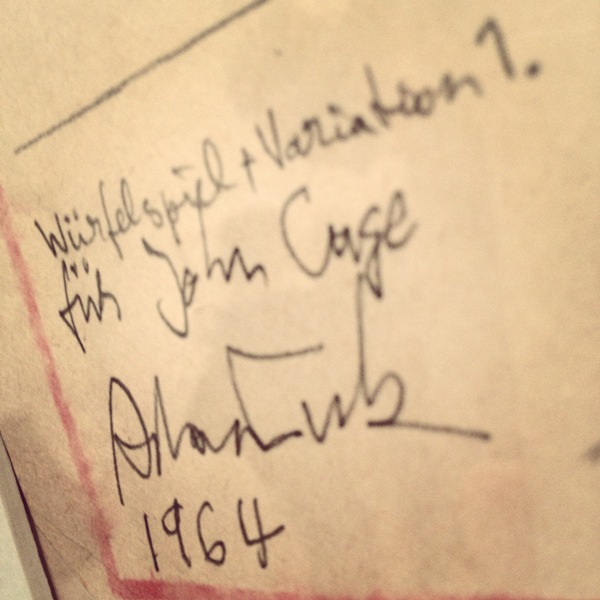 Würfelspiel + Variation 1.
für John Cage
1964